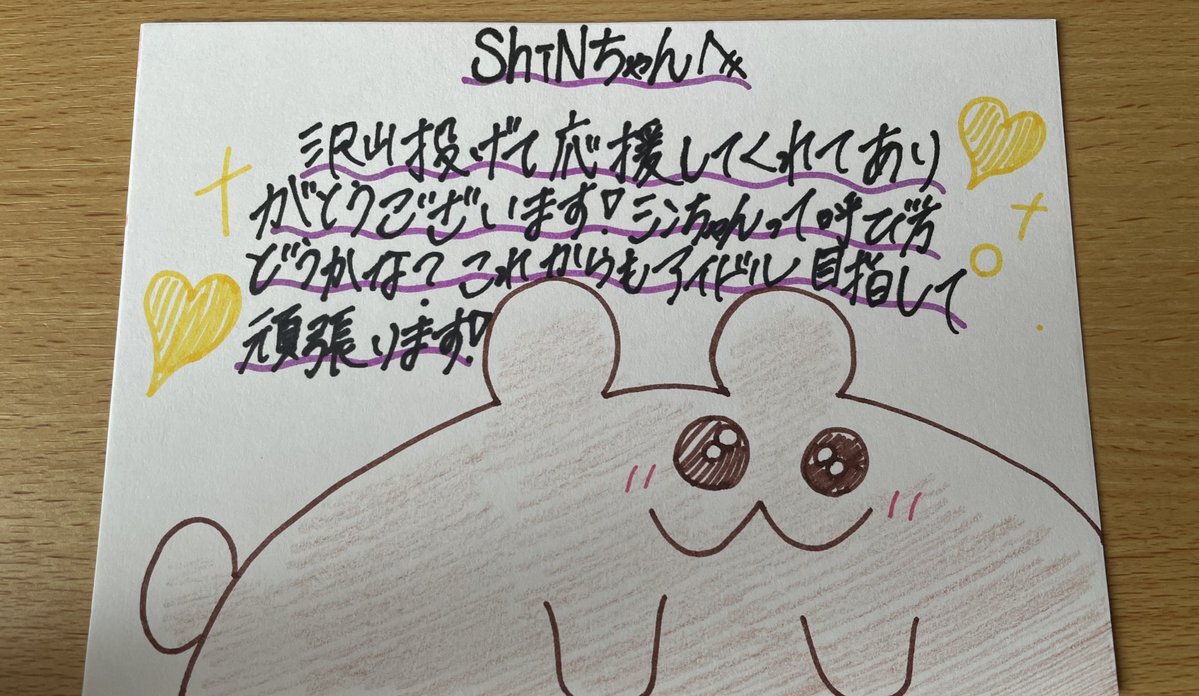 ShiNちゃんへ
沢山投げて応援してくれてあり
がとうございます!シンちゃんって呼び方
どうかな?これからもアイドル目指して
頑張ります!